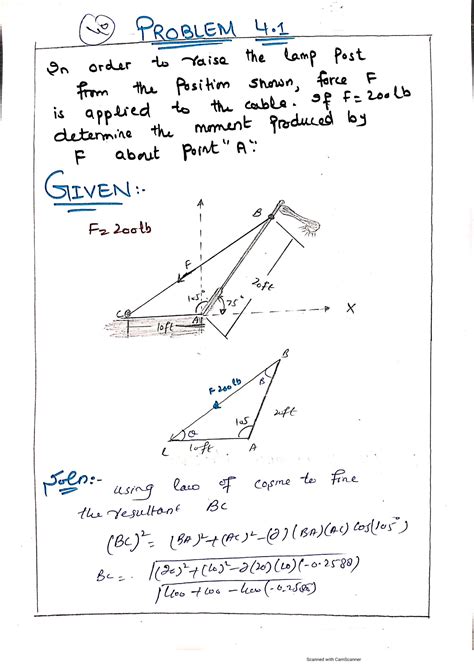 40
PROBLEM 4.1
In order to raise the lamp post
from the Position shown, force F
is applied to the cable. If F=200lb
determine the moment Produced by
F about Point "A".
GIVEN:-
F=200lb
B
F
20ft
105°
75°
C
A
X
10ft
B
F 200lb
B
105
20ft
θ
L
10ft
A
Soln:- using law of cosine to fine
the resultant BC
(BC)² = (BA)²+(AC)²-(2)(BA)(AC) cos(105°)
BC = √(20)²+(10)²-2(20)(10)(-0.2588)
√400+100-400(-0.2588)
Scanned with CamScanner